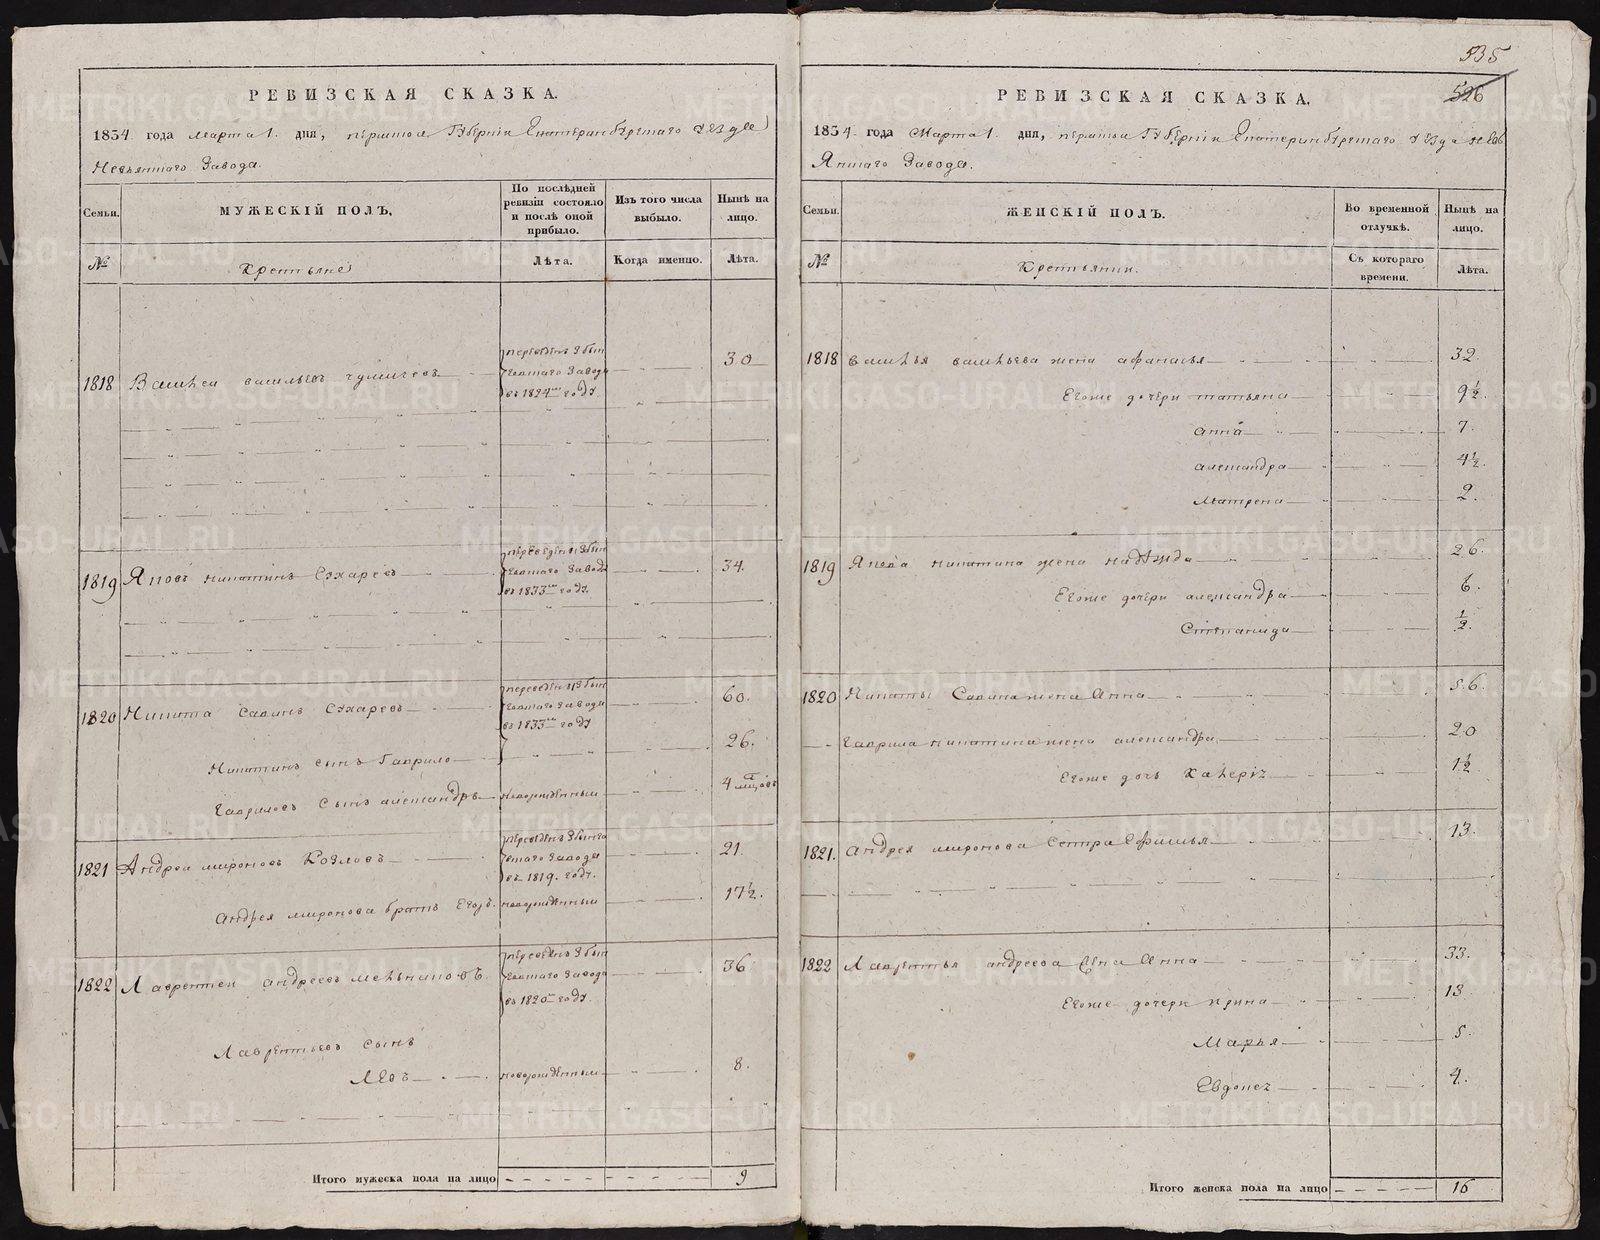 535
526
РЕВИЗСКАЯ СКАЗКА.
1834 года Марта 1. дня, пермской Губернии Екатеринбургскаго уезда
Невьянскаго Завода.
Семьи.
МУЖЕСКІЙ ПОЛЪ.
По послѣдней ревизіи состояло и послѣ оной прибыло.
Изъ того числа выбыло.
Нынѣ на лицо.
№
Крестьяне
Лѣта.
Когда именно.
Лѣта.
1818 Василей васильевъ 30
въ 1824 году
1819 Яковъ никитинъ Сухаревъ 34.
въ 1833 году
1820 Никита Савинъ Сухаревъ 60.
въ 1833 году
Никитинъ сынъ Гаврило 26.
Гавриловъ сынъ александръ новорожденный 4
1821 Андрей мироновъ Козловъ 21.
въ 1819. году.
Андрея миронова братъ Егоръ. новорожденный 17½.
1822 Лаврентей андреевъ мельниковъ. 36
въ 1820 году
Лаврентьевъ сынъ
Левъ новорожденный 8.
Итого мужеска пола на лицо 9
РЕВИЗСКАЯ СКАЗКА.
1834 года Марта 1. дня, пермской Губернии Екатеринбургскаго уезда невь
янскаго Завода.
Семьи.
ЖЕНСКІЙ ПОЛЪ.
Во временной отлучкѣ.
Нынѣ на лицо.
№
Крестьянки.
Съ котораго времени.
Лѣта.
1818 василья васильева жена афанасья 32
Егоже дочери татьяна 9½.
анна 7.
александра 4½.
Матрена 2.
1819 Якова никитина жена надѣжда 26.
Егоже дочери александра 6.
Степанида ½.
1820 Никиты Савина жена Анна 56.
Гаврила никитина жена александра 20
Егоже дочь 1½
1821. Андрея миронова Сестра 13.
1822 Лаврентья андреева жена Анна 33.
Егоже дочери ирина 13
Марья 5
Евдокея 4.
Итого женска пола на лицо 16
METRIKI.GASO-URAL.RU